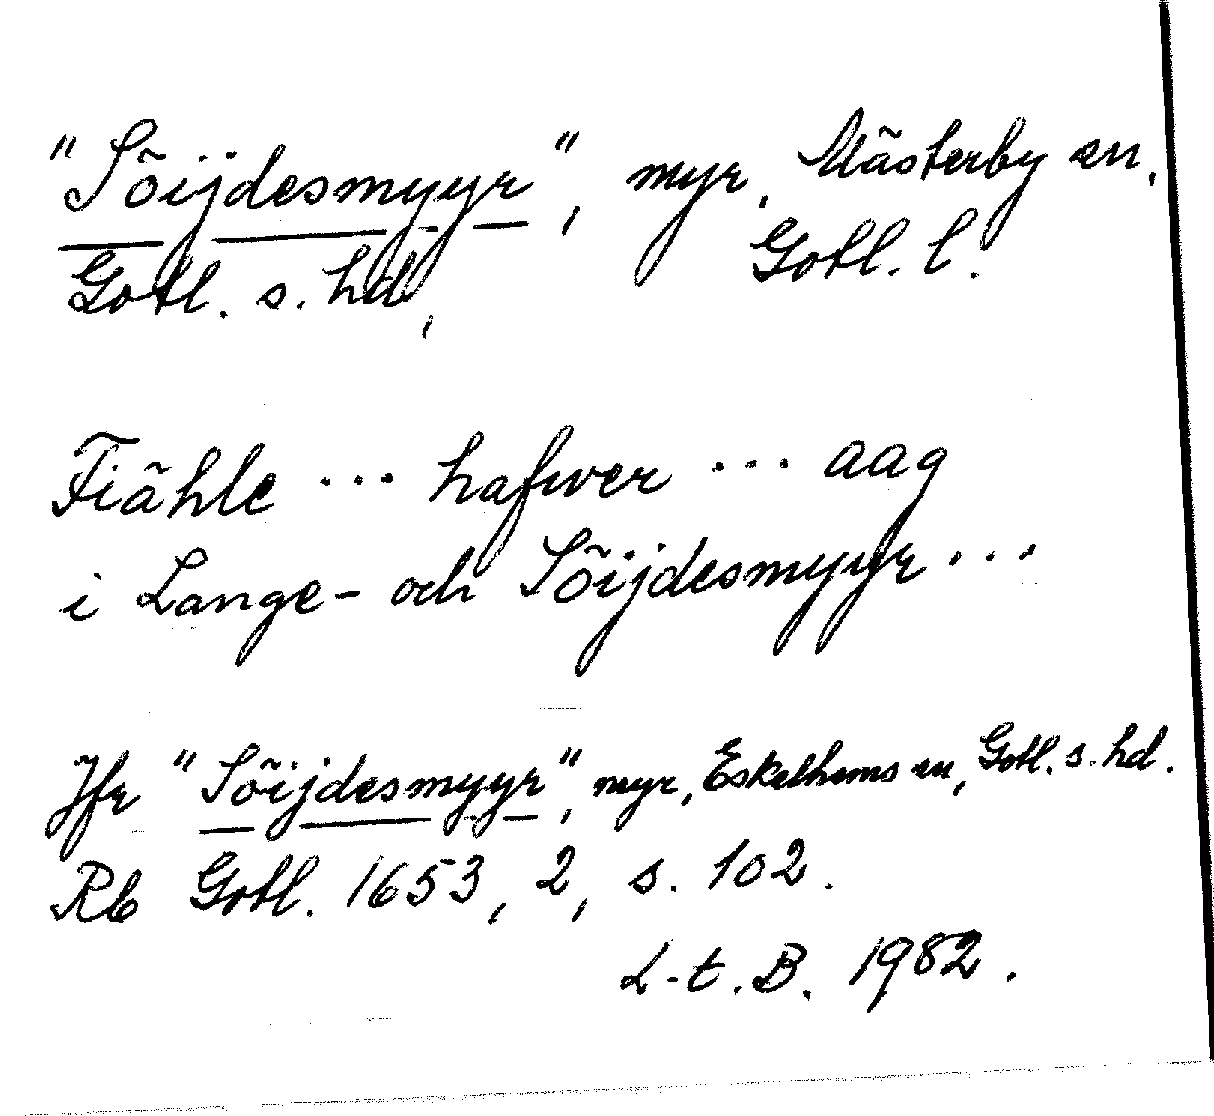 "Sõijdesmyyr", myr, Mãsterby sn,
Gotl. s. hd, Gotl. l.
Fiãhle ... hafwer ... aag
i Lange- och Sõijdesmyyr ...
Jfr "Sõijdesmyyr", myr, Eskelhems sn, Gotl. s. hd.
Rb Gotl. 1653, 2, s. 102.
L-t. B. 1982.